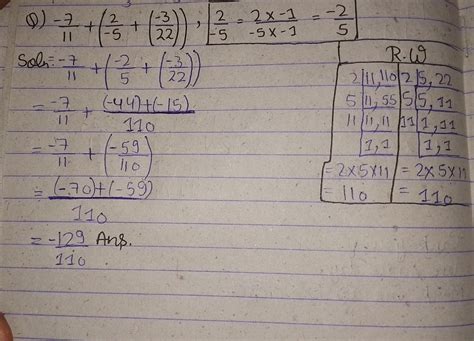 Q) -7/11 + (2/-5 + (-3/22)), 2/-5 = 2×-1/-5×-1 = -2/5
Soln:- -7/11 + (-2/5 + (-3/22))
= -7/11 + (-44)+(-15)/110
= -7/11 + (-59/110)
= (-70)+(-59)/110
= -129/110 Ans.
R.W
2 | 11, 110
5 | 11, 55
11 | 11, 11
1, 1
= 2×5×11
= 110
2 | 5, 22
5 | 5, 11
11 | 1, 11
1, 1
= 2×5×11
= 110